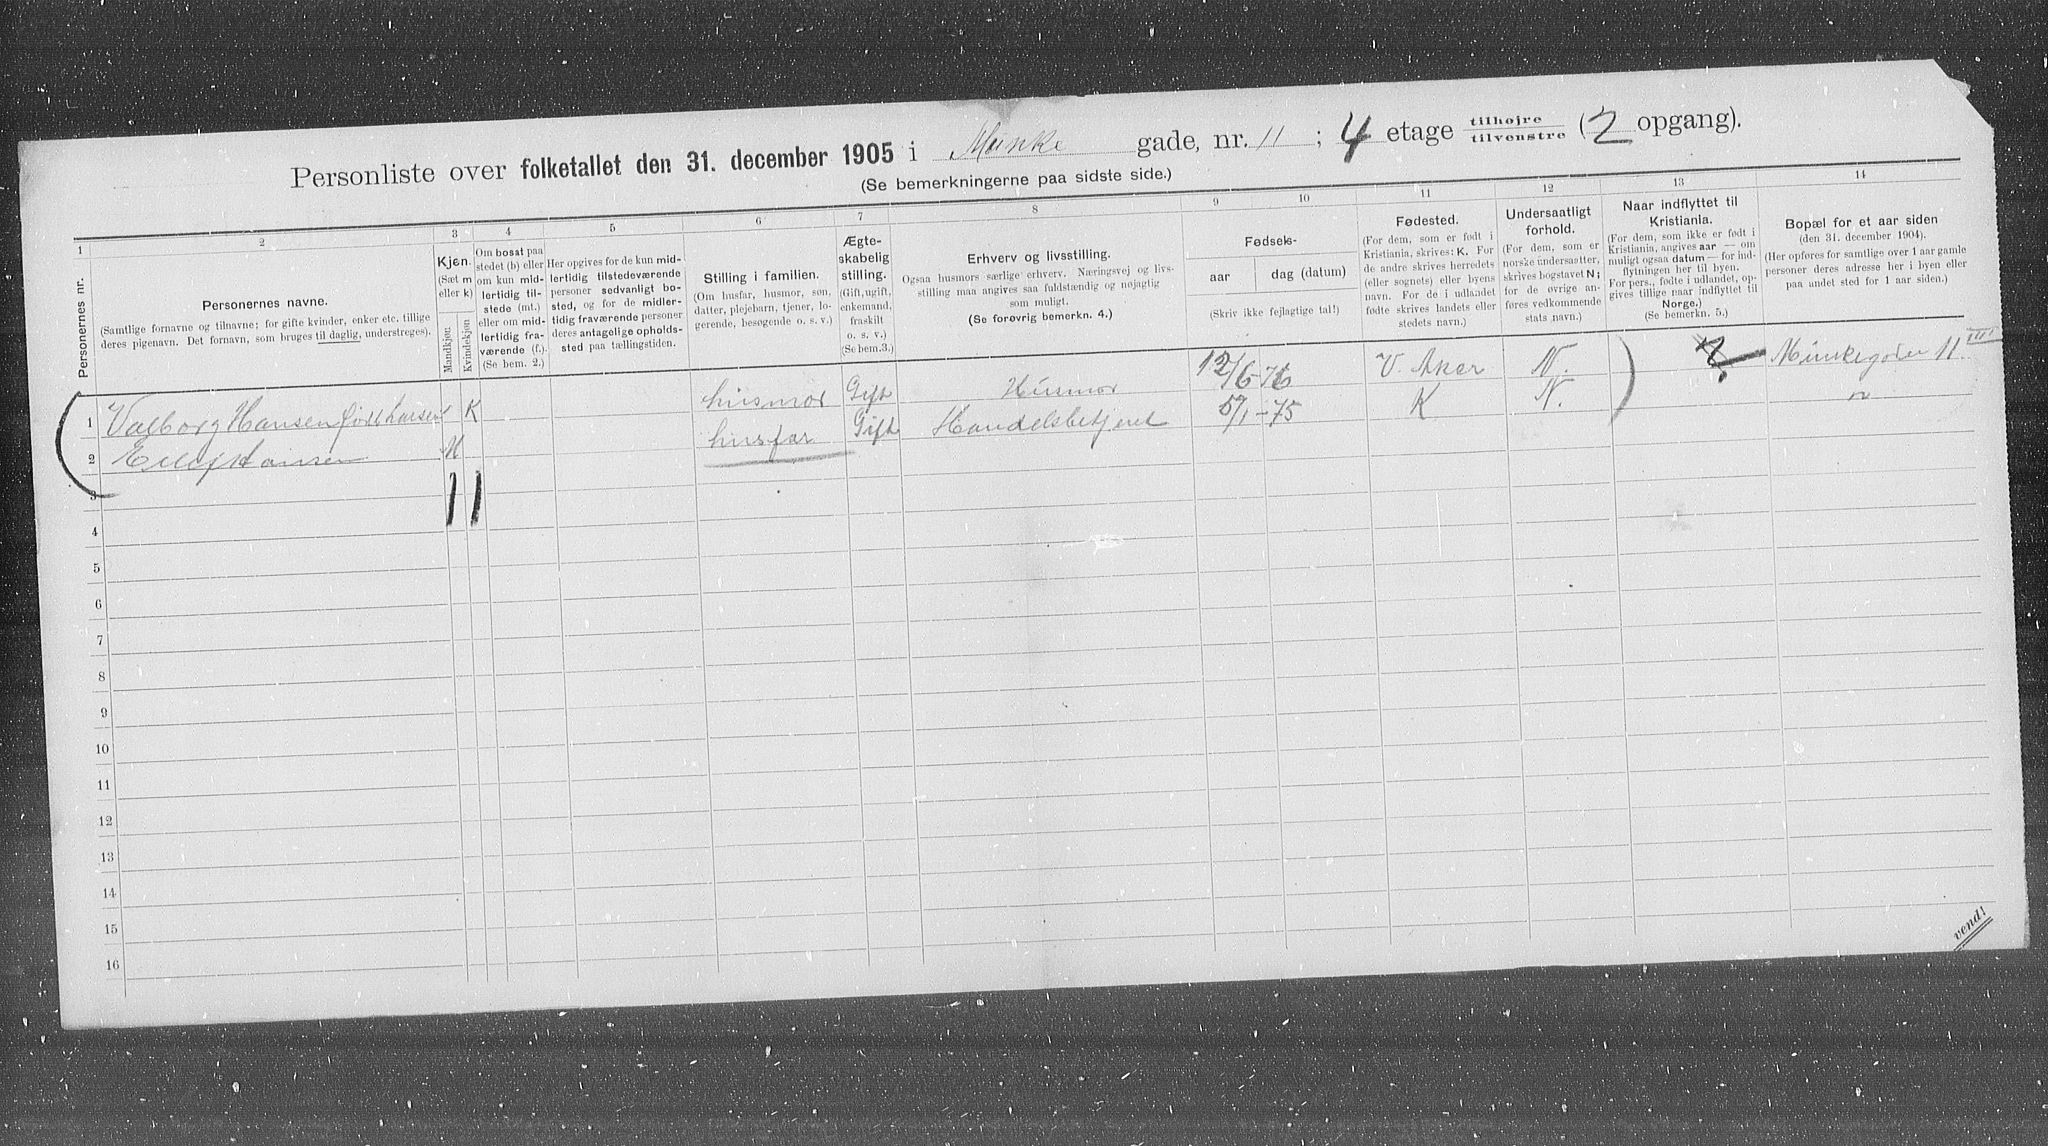 Personliste over folketallet den 31. december 1905 i Munke gade, nr. 11 ; 4 etage tilhøjre tilvenstre (2 opgang).
(Se bemerkningerne paa sidste side.)
1 2 3 4 5 6 7 8 9 10 11 12 13 14
Personernes nr.
Personernes navne.
(Samtlige fornavne og tilnavne; for gifte kvinder, enker etc. tillige
deres pigenavn. Det fornavn, som bruges til daglig, understreges).
Kjøn.
(Sæt m
eller k)
Mandkjøn.
Kvindekjøn.
Om bosat paa
stedet (b) eller
om kun mid-
lertidig til-
stede (mt.)
eller om mid-
lertidig fra-
værende (f.).
(Se bem. 2.)
Her opgives for de kun mid-
lertidig tilstedeværende
personer sedvanligt bo-
sted, og for de midler-
tidig fraværende personer
deres antagelige opholds-
sted paa tællingstiden.
Stilling i familien.
(Om husfar, husmor, søn,
datter, plejebarn, tjener, lo-
gerende, besøgende o. s. v.)
Ægte-
skabelig
stilling.
(Gift, ugift,
enkemand,
fraskilt
o. s. v.)
(Se bem. 3.)
Erhverv og livsstilling.
Ogsaa husmors særlige erhverv. Næringsvej og livs-
stilling maa angives saa fuldstændig og nøjagtig
som muligt.
(Se forøvrig bemerkn. 4.)
Fødsels-
aar dag (datum)
(Skriv ikke fejlagtige tal!)
Fødested.
(For dem, som er født i
Kristiania, skrives: K. For
de andre skrives herredets
(eller sognets) eller byens
navn. For de i udlandet
fødte skrives landets eller
stedets navn.)
Undersaatligt
forhold.
(For dem, som er
norske undersaatter,
skrives bogstavet N;
for de øvrige an-
føres vedkommende
stats navn.)
Naar indflyttet til
Kristiania.
(For dem, som ikke er født i
Kristiania, angives aar — om
muligt ogsaa datum — for ind-
flytningen her til byen.
For pers., fødte i udlandet, op-
gives tillige naar indflyttet til
Norge.)
(Se bemerkn. 5.)
Bopæl for et aar siden
(den 31. december 1904).
(Her opføres for samtlige over 1 aar gamle
personer deres adresse her i byen eller
paa andet sted for 1 aar siden.)
1 Valborg Hansen født Larsen K husmor Gift Husmor 12/6-76 V. Aker N. ? Munkegaden 11 III
2 Eilef Hansen M husfar Gift Handelsbetjent 5/1-75 K N. "
3 1 1
4
5
6
7
8
9
10
11
12
13
14
15
16
vend!